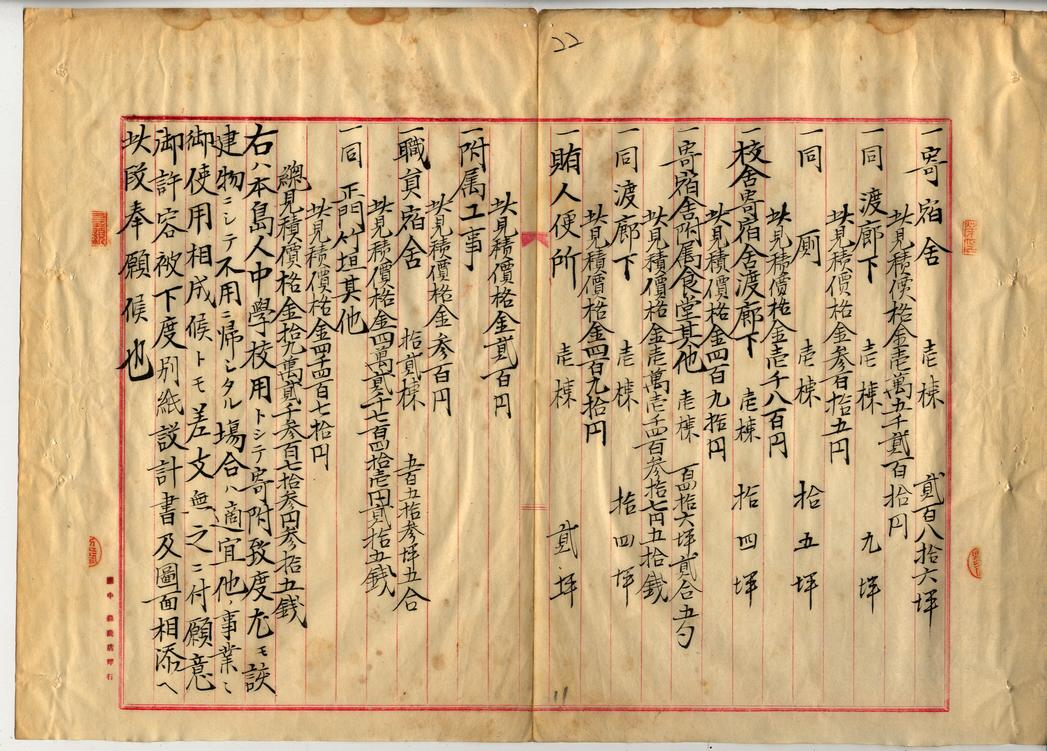 22
一寄宿舍 壱棟 貳百八拾六坪
此見積價格金壱萬五千貳百拾円
一同渡廊下 壱棟 九坪
此見積價格金参百拾五円
一同厠 壱棟 拾五坪
此見積價格金壱千八百円
一校舍寄宿舍渡廊下 壱棟 拾四坪
此見積價格金四百九拾円
一寄宿舍附属食堂其他 壱棟 百四拾六坪貳合五勺
此見積價格金壱萬壱千四百参拾七円五拾銭
一同渡廊下 壱棟 拾四坪
此見積價格金四百九拾円
一賄人便所 壱棟 貳坪
此見積價格金貳百円
一附属工事
此見積價格金参百円
一職員宿舍 拾貳棟 五百五拾参坪五合
此見積價格金四萬貳千七百四拾壱円貳拾五銭
一同正門竹垣其他
此見積價格金四千四百七拾円
總見積價格金拾九萬貳千参百七拾参円参拾五銭
右ハ本島人中學校用トシテ寄附致度尤モ該
建物ニシテ不用ニ帰シタル場合ハ適宜他ノ事業ニ
御使用相成候トモ差支無之ニ付願意
御許容被下度別紙設計書及圖面相添ヘ
此段奉願候也
11